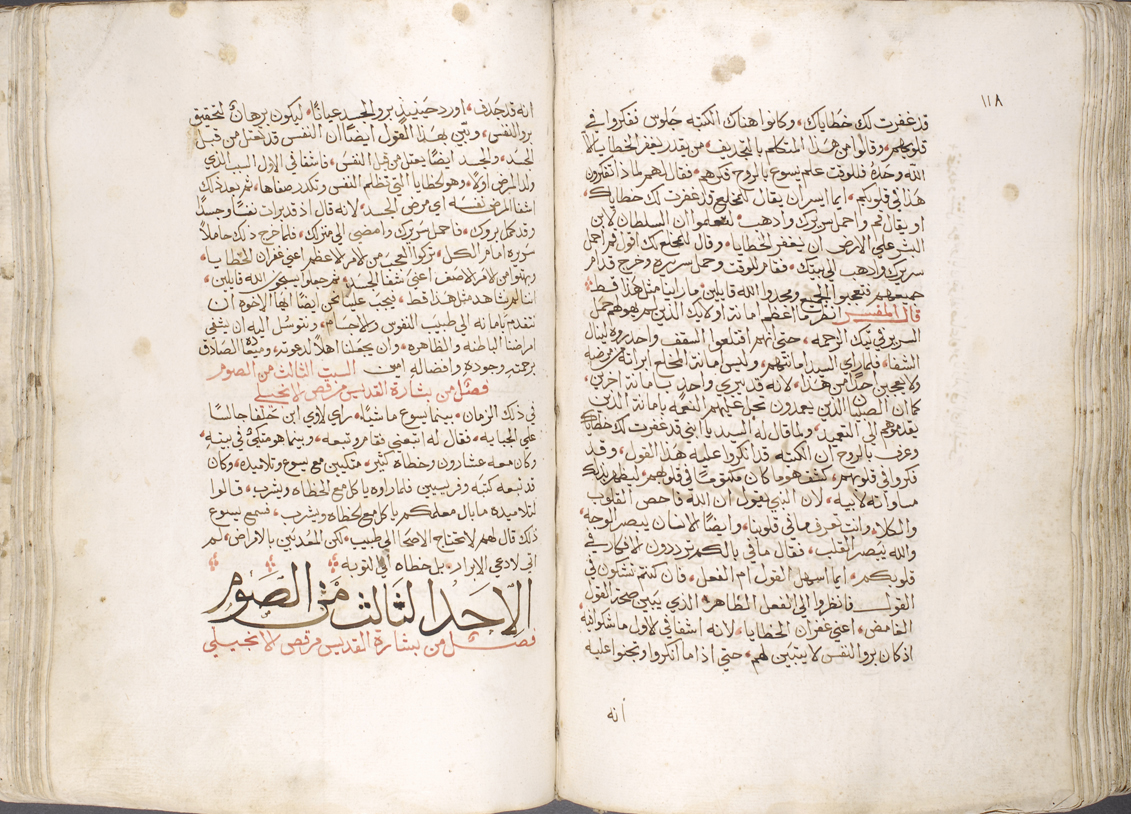 ١١٨
قد غفرت لك خطاياك، وكانوا هناك الكتبه جلوس تفكروا في
قلوبهم، وقالوا من هذا المتكلم بالتجديف، من يقدر يغفر الخطايا الا
الله وحده فللوقت علم يسوع بالروح فكرهم، فقال لهم لماذا تفكرون
هذا في قلوبكم، ايما ايسر ان يقال للمخلع قد غفرت لك خطاياك
او يقال قم واحمل سريرك واذهب، لتعلموا ان السلطان لابن
البشر علي الارض ان يغفر الخطايا، وقال للمخلع لك اقول قم احمل
سريرك واذهب الي بيتك، فقام للوقت وحمل سريره وخرج قدام
جميعهم فتعجبوا الجميع ومجدوا الله قايلين ما راينا مثل هذا قط
قال المفسر انظر ما اعظم امانة اوليك الذين حمل
السرير في تيك الزحمه، حتي انهم اقتلعوا السقف واحدروه لينال
الشفا، فلما راي السيد امانتهم، وليس امانة المخلع ابراته من مرضه
ولا يعجبن احدا من هذا، لانه قد يبري واحد بامانة اخرين،
كما ان الصبيان الذين يعمدون تحل عليهم النعمه بامانة الذين
يقدموهم الي التعميد، ولما قال له السيد يا ابني قد غفرت لك خطاياك
وعرف بالروح ان الكتبه قد انكروا عليه هذا القول، وقد
فكروا في قلوبهم، كشف هو ما كان مكتوما في قلوبهم، ليظهر بذلك
مساواته لابيه، لان النبي يقول ان الله فاحص القلوب
والكلا، وانت تعرف ما في قلوبنا، وايضا الانسان يبصر الوجه
والله يبصر القلب، فقال ما في بالكم ترددون الافكار في
قلوبكم، ايما اسهل القول ام الفعل، فان كنتم تشكون في
القول فانظروا الي الفعل الظاهر الذي يبين صحة القول
الغامض، اعني غفران الخطايا، لانه اشفا في الاول ما شكوا فيه
اذ كان برو النفس لا يتبين لهم، حتي اذا ما انكروا وتجنوا عليه
أنه
انه قد جدف، اورد حينيذ برو الجسد عيانا، ليكون برهان لتحقيق
برو النفس، وتبين بهذا القول ايضا ان النفس قد تعتل من قبل
الجسد، والجسد ايضا يعتل من قبل النفس، فاشفا في الاول السبب الذي
ولد المرض اولا، وهو الخطايا التي تظلم النفس وتكدر صفاها، ثم بعد ذلك
اشفا المرض نفسه اي مرض الجسد، لانه قال اذ قد برات نفسا وجسدا
وقد كمل بروك، فاحمل سريرك وامضي الي منزلك، فلما خرج ذلك حاملا
سريره امام الكل، تركوا التعجب من الامر الاعظم اعني غفران الخطايا،
وبهتوا من الامر الاصغر، اعني شفا الجسد، ثم جعلوا يسبحون الله قايلين،
اننا لم نشاهد مثل هذا قط، فيجب علينا نحن ايضا ايها الاخوه ان
نتقدم بامانه الي طبيب النفوس والاجسام، ونتوسل اليه ان يشفي
امراضنا الباطنه والظاهره، وان يجعلنا اهلا لدعوته، الصلاة
برحمته وجوده وافضاله امين السبت الثالث من الصوم
فصل من بشارة القديس مرقص الانجيلي
في ذلك الزمان، بينما يسوع ماشيا، راي لاوي ابن حلفا جالسا
علي الجبايه، فقال له اتبعني فقام وتبعه، وبينما هو متكي في بيته،
وكان معه عشارون وخطاه كثير، متكيين مع يسوع وتلاميذه، وكان
قد تبعه كتبه وفريسيين فلما راوه ياكل مع الخطاه ويشرب، قالوا
لتلاميذه ما بال معلمكم ياكل مع الخطاه ويشرب، فسمع يسوع
ذلك قال لهم لا يحتاج الاصحا الي طبيب، لكن المعذبين بالامراض، لم
اتي لادعي الابرار، بل خطاه الي التوبه
الاحد الثالث من الصوم
فصل من بشارة القديس مرقص الانجيلي